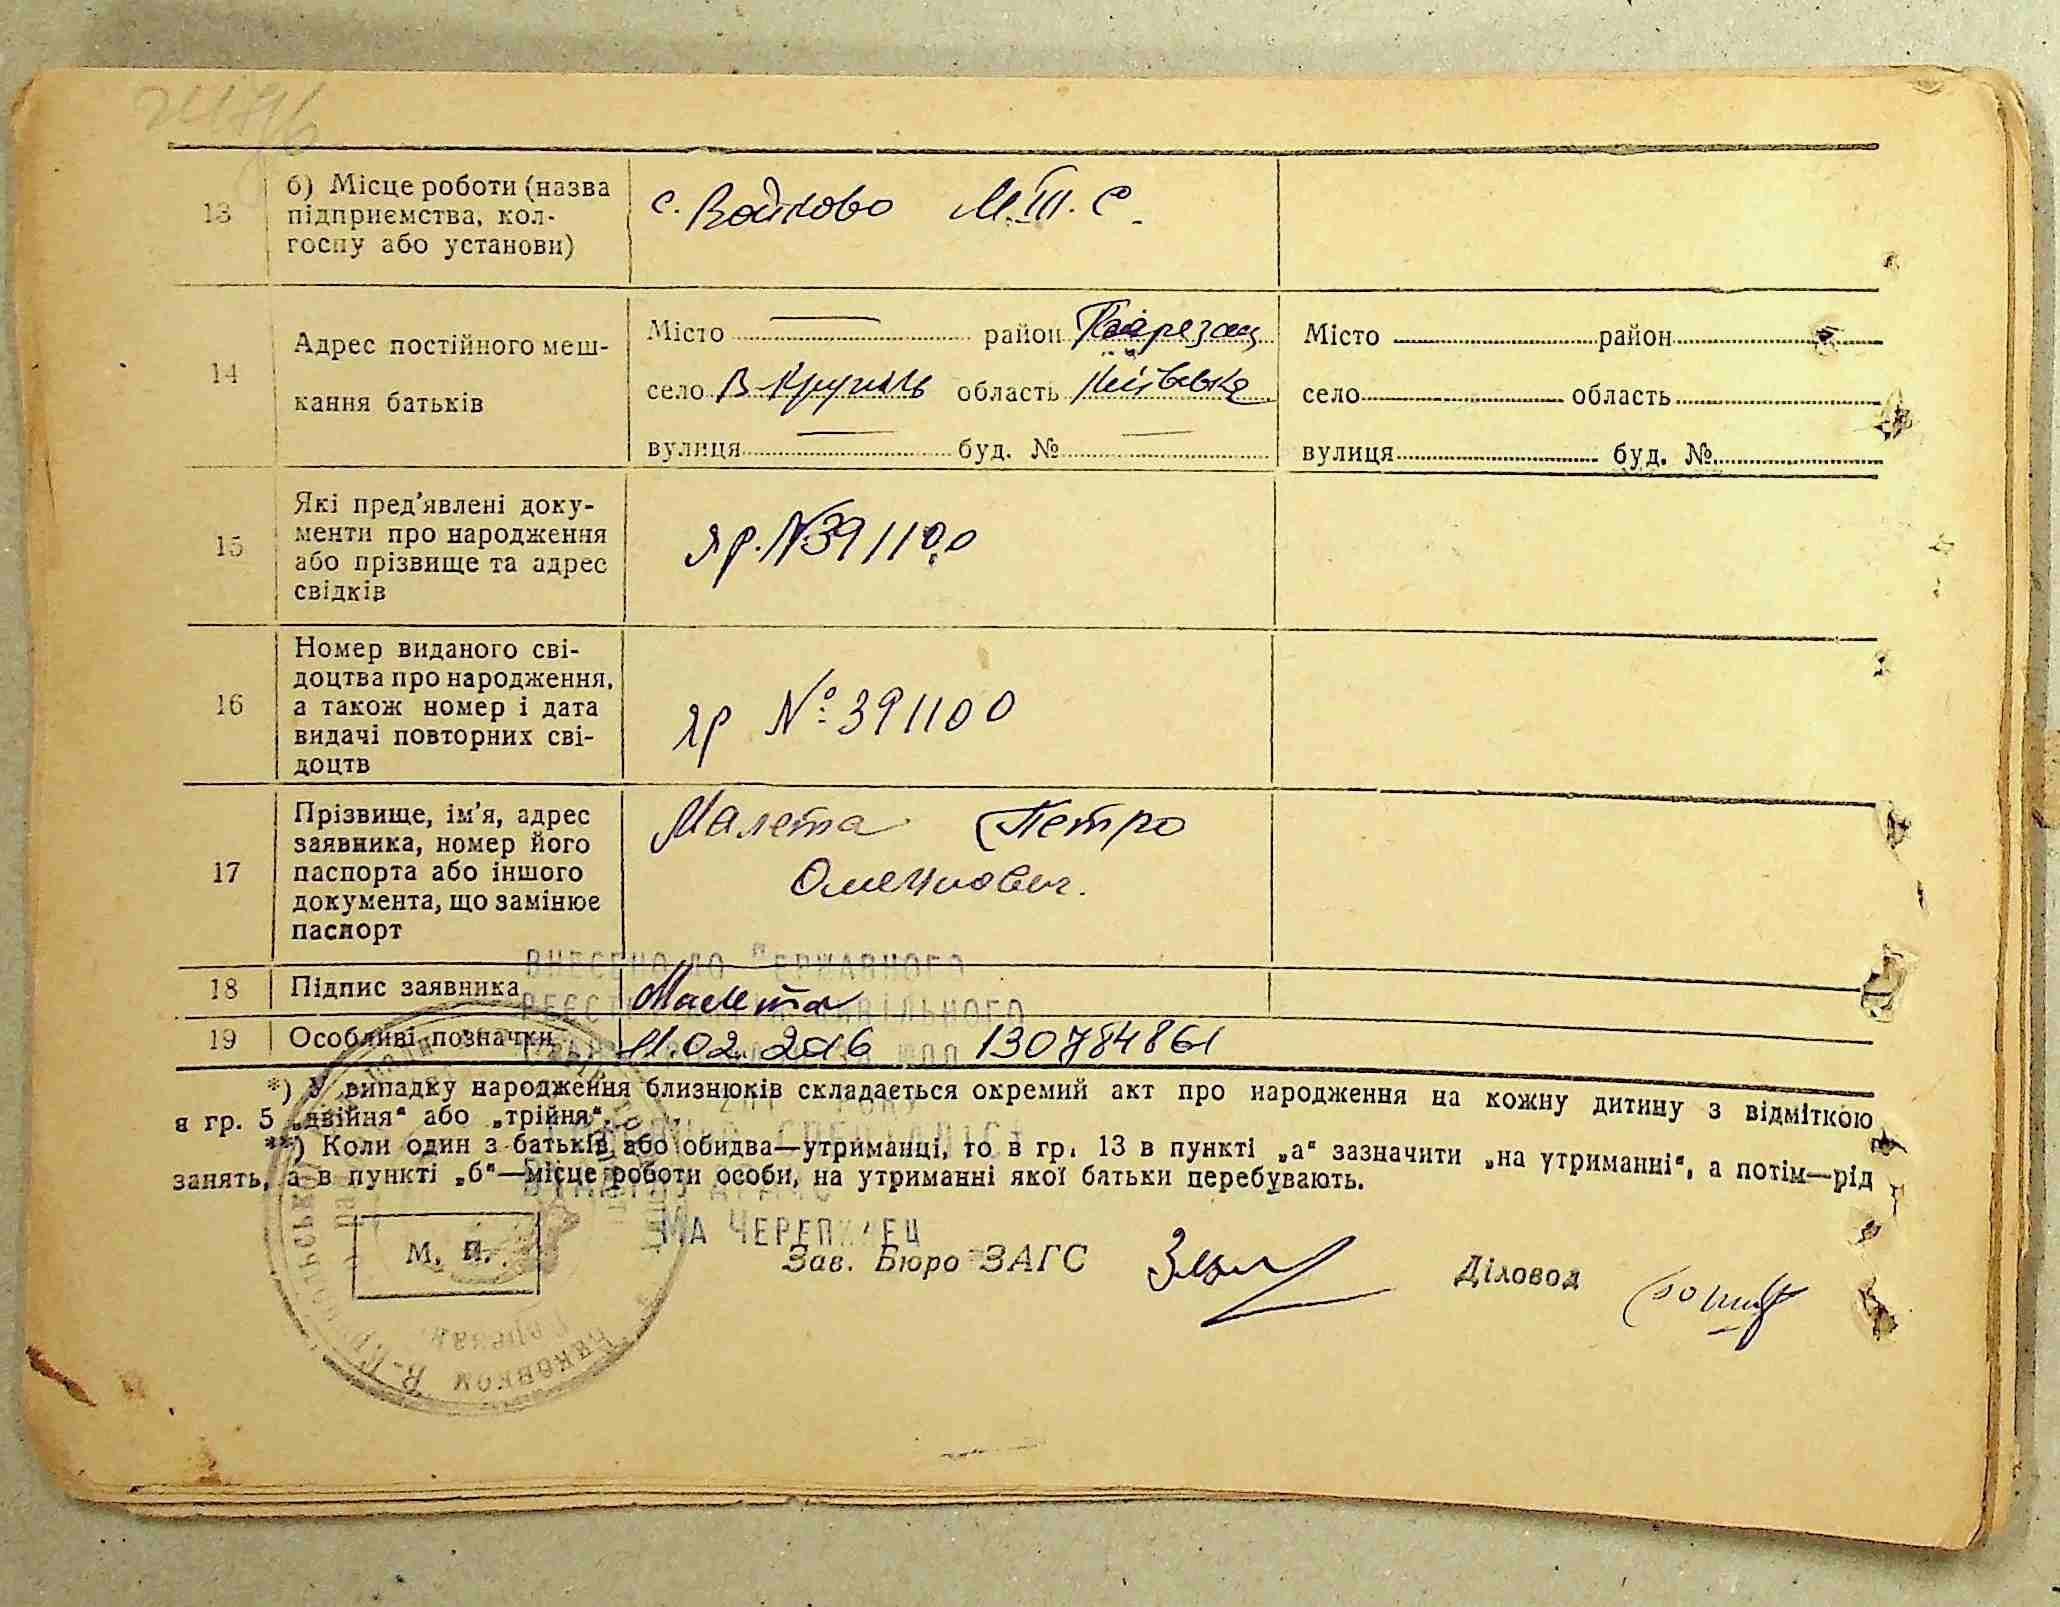 13
б) Місце роботи (назва
підприємства, кол-
госпу або установи)
с. Войково М.Т.С.
14
Адрес постійного меш-
кання батьків
Місто район
село В-Крупіль область Київська
вулиця буд. №
Місто район
село область
вулиця буд. №
15
Які пред'явлені доку-
менти про народження
або прізвище та адрес
свідків
яр. № 391100
16
Номер виданого сві-
доцтва про народження,
а також номер і дата
видачі повторних сві-
доцтв
яр № 391100
17
Прізвище, ім'я, адрес
заявника, номер його
паспорта або іншого
документа, що замінює
паспорт
Малета Петро
18
Підпис заявника
Малета
19
Особливі позначки
11.02.2016 130784861
ВНЕСЕНО ДО ДЕРЖАВНОГО
*) У випадку народження близнюків складається окремий акт про народження на кожну дитину з відміткою
в гр. 5 „двійня“ або „трійня“.
**) Коли один з батьків або обидва—утриманці, то в гр. 13 в пункті „а“ зазначити „на утриманні“, а потім—рід
занять, а в пункті „б“—місце роботи особи, на утриманні якої батьки перебувають.
М. П.
Зав. Бюро ЗАГС
Діловод